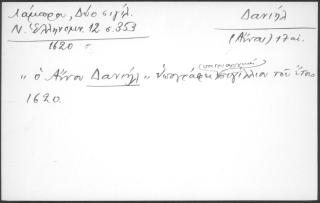 Λάμπρου, Δύο σιγίλ.
Ν. Ἑλληνομν. 12 σ. 353
1620
Δανιήλ
(Αἴνου) 17 αἰ.
" ὁ Αἴνου Δανιήλ " ὑπογράφει (πατριαρχικὸ) σιγίλλιον τοῦ ἔτους
1620.